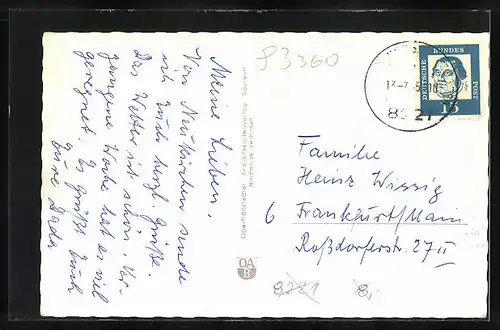 83360
Meine Lieben,
Von Neukirchen sende
ich Euch herzl. Grüße.
Das Wetter ist schön. Ver-
gangene Woche hat es viel
geregnet. Es grüßt Euch
Eure Dada
Oberpfälzischer Ansichtskartenverlag
Nachdruck verboten
OA
B
DEUTSCHE BUNDES POST
15
Familie
Heinz Wissig
6 Frankfurt/Main
Roßdorferstr. 27 II
8221
8,-